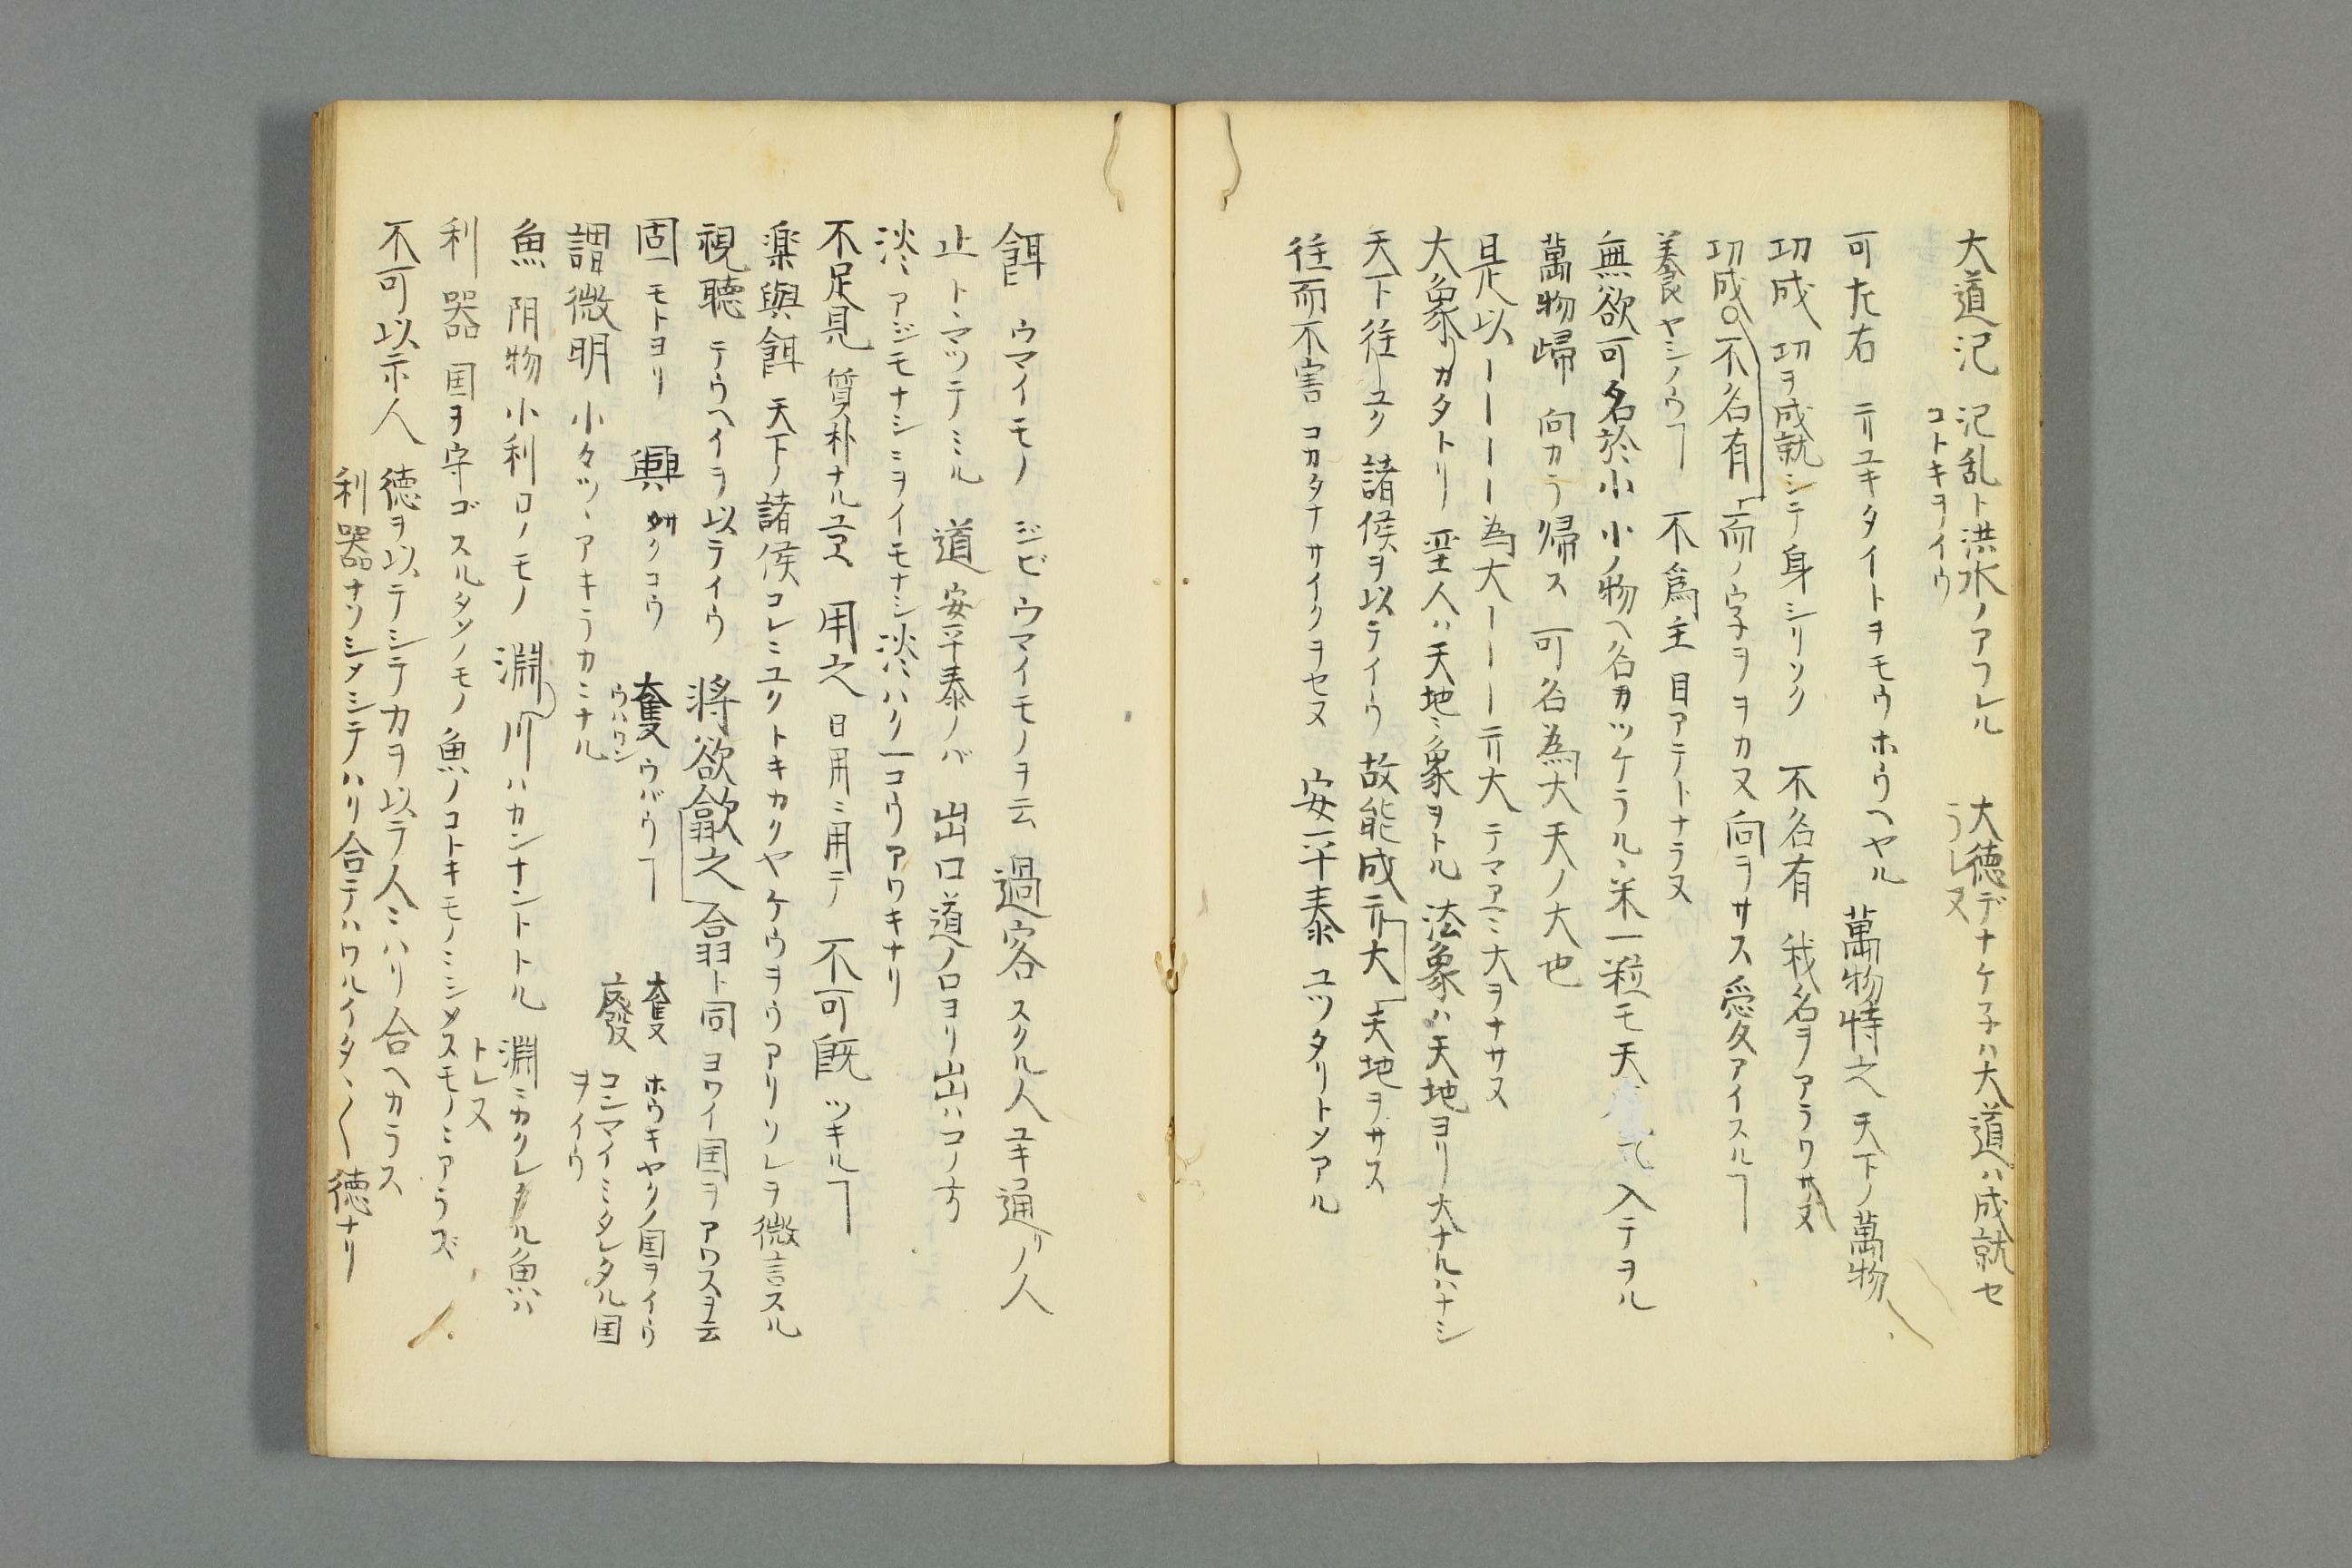 大道氾 氾乱ト洪水ノアフレル
コトキヲイウ
大徳デナケ子ハ大道ハ成就セ
ラレヌ
可左右 ユキタイトヲモウホウヘヤル 萬物恃之 天下ノ萬物
功成 功ヲ成就シテ身シリソク 不名有 我名ヲアラワサヌ
功成○不名有 而ノ字ヲヲカヌ 向ヲサス 愛 アイスルヿ
養 ヤシノウヿ 不爲主 目アテトナラヌ
無欲可名於小 小ノ物ヘ名カツケラルヽ 米一粒モ天 入テヲル
萬物歸 向カラ帰ス 可名為大 天ノ大也
是以ーーーー為大ーーーー大 テマアニ大ヲナサヌ
大象 カタトリ 聖人ハ天地ニ象ヲトル 法象ハ天地ヨリ大ナルハナシ
天下往 ユク 諸侯ヲ以テイウ 故能成 大 天地ヲサス
往而不害 コカタナサイクヲセヌ 安平泰 ユツタリトシアル
餌 ウマイモノ ジビウマイモノヲ云 過客 スクル人 ユキ通リノ人
止 トヽマツテミル 道 安平泰ノバ 出口 道ノロヨリ出ハコノ方
淡 アジモナシニヲイモナシ 淡ハクーコウアワキナリ
不足見 質朴ナルユヘ 用之 日用ニ用テ 不可既 ツキルヿ
楽與餌 天下ノ諸侯コレニユクトキカクヤケウヲウアリソレヲ微言スル
視聴 テウヘイヲ以テイウ 將欲歙之 翕ト同 ヨワイ国ヲアワスヲ云
固 モトヨリ 興 カクコウ 奪 ウバウヿ
ウハワン
奪 ホウキヤクノ国ヲイウ
廢 コンマイミタレタル国
ヲイウ
謂微明 小々ツヽアキラカニナル
魚 阴物小利口ノモノ 淵 川ハカンナントトル 淵ニカクレタル魚ハ
トレヌ
利器 国ヲ守ゴスルタンノモノ 魚ノコトキモノニシメスモノニアラズ
不可以示人 徳ヲ以テシテカヲ以テ人ニハリ合ヘカラス
利器ナソシメシテハリ合テハワルイタヽ〱徳ナリ